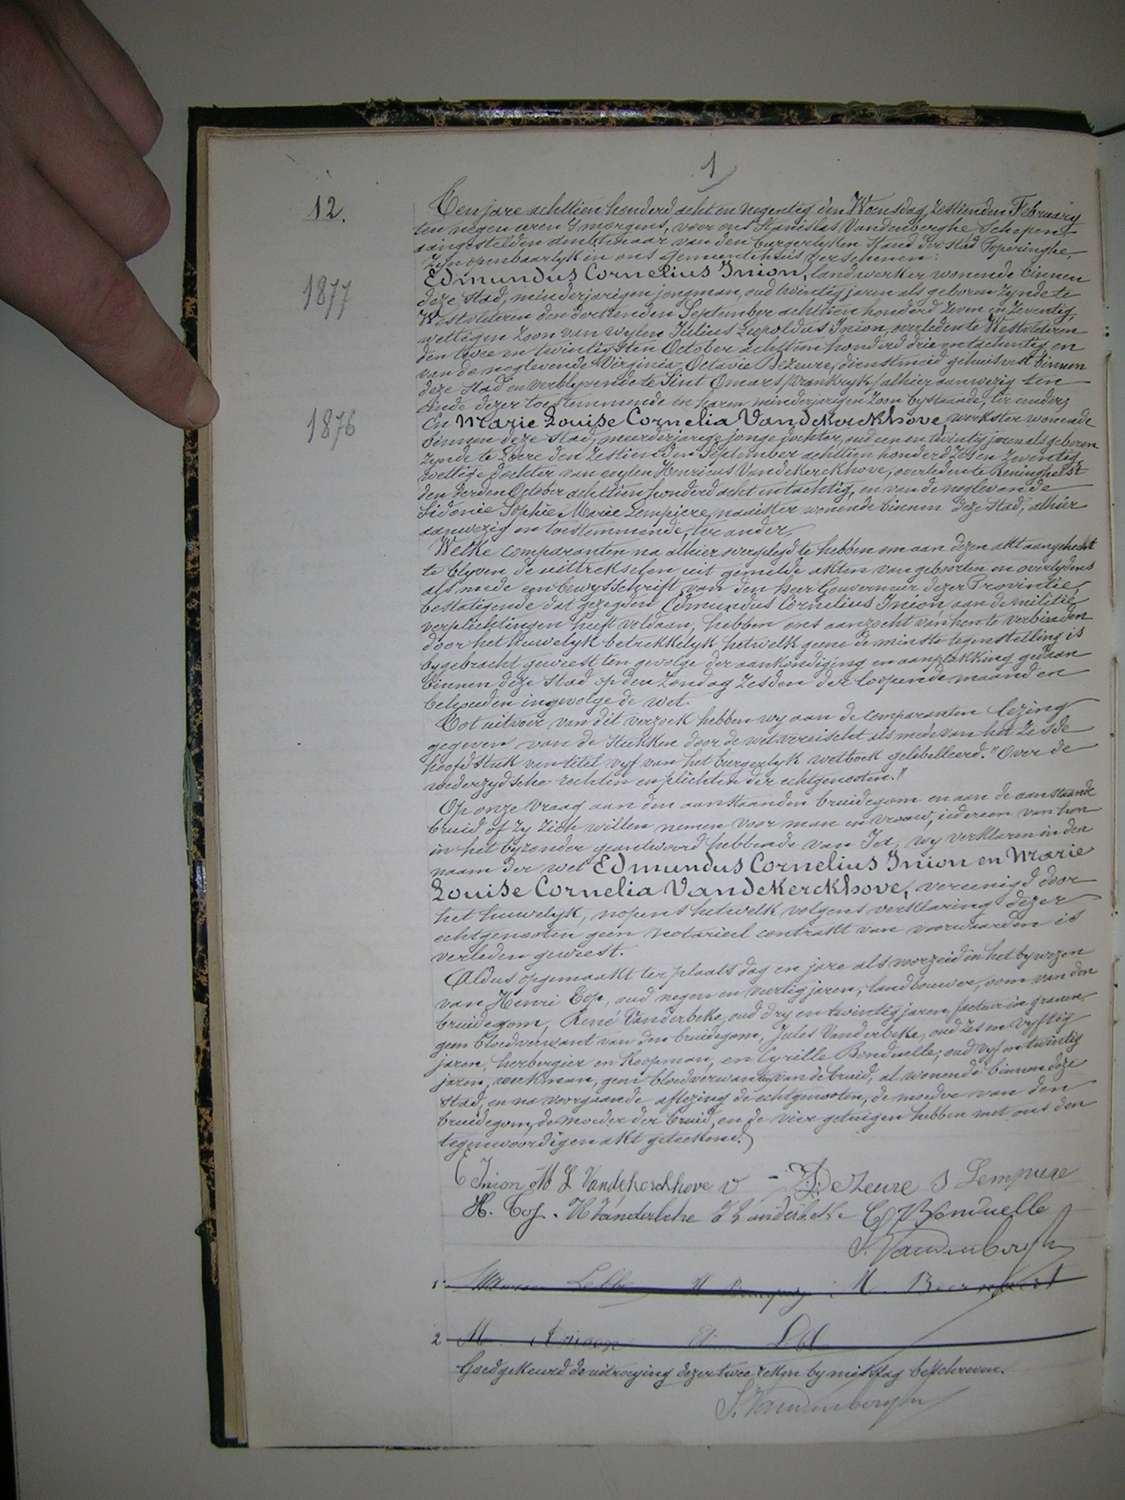 1
12.
Ten jare achttien honderd acht en negentig den Woensdag, zestienden February
ten negen uren 's morgens, voor ons Stanislas Vandenberghe Schepen
aangestelden ambtenaar van den burgerlyken Stand der stad Poperinghe,
zyn openbaarlyk en ons gemeentehuis verschenen:
Edmundus Cornelius Inion, landwerker wonende binnen
1877
deze stad, minderjarigen jongman, oud twintig jaren als geboren zynde te
Westvleteren den dertienden September achttien honderd zeven en zeventig,
wettigen zoon van wylen Julius Leopoldus Inion, overleden te Westvleteren
den twee en twintigsten October achttien honderd drie en tachentig en
van de noglevende Virginia Octavie Dezeure, dienstmeid gehuisvest binnen
deze stad en verblyvende te Sint Omars, Frankryk, alhier aanwezig ten
einde dezer toestemmende en haren minderjarigen zoon bystaande, ter eender;
1876
en Marie Louise Cornelia Vandekerckhove, werkster wonende
binnen deze stad, meerderjarige jonge dochter, oud een en twintig jaren als geboren
zynde te Locre den zestienden September achttien honderd zes en zeventig,
wettige dochter van wylen Henricus Vandekerckhove, overleden te Reninghelst
den derden October achttien honderd acht en tachtig, en van de noglevende
Sidonie Sophie Marie Lempiere, naaister wonende binnen deze stad, alhier
aanwezig en toestemmende, ter ander,
Welke comparanten na alhier overgelegd te hebben om aan dezen akt aangehecht
te blyven de uittrekselen uit gemelde akten van geboorten en overlydens
als mede een bewysschrift van den heer Gouverneur dezer Provintie
bestatigende dat gezegden Edmundus Cornelius Inion aan de militie
verplichtingen heeft voldaan, hebben ons aanzocht van hen te verbinden
door het huwelyk betrekkelyk hetwelk geene de minste tegenstelling is
bygebracht geweest ten gevolge der aankondiging en aanplakking gedaan
binnen deze stad op den zondag zesden der loopende maand en
behouden ingevolge de wet.
Tot uitvoer van dit verzoek hebben wy aan de comparanten lezing
gegeven van de stukken door de wet vereischt als mede van het zesde
hoofdstuk van titel vyf van het burgerlyk wetboek gelibelleerd: "Over de
wederzydsche rechten en plichten der echtgenooten."
Op onze vraag aan den aanstaanden bruidegom en aan de aanstaande
bruid of zy zich willen nemen voor man en vrouw, iedereen van hen
in het byzonder geantwoord hebbende van Ja, wy verklaren in den
naam der wet Edmundus Cornelius Inion en Marie
Louise Cornelia Vandekerckhove, vereenigd door
het huwelyk, nopens hetwelk volgens verklaring dezer
echtgenooten geen notarieel contrakt van voorwaarden is
verleden geweest.
Aldus opgemaakt ter plaats dag en jare als vorzeid in het bywezen
van Henri Top, oud negen en veertig jaren, landbouwer, oom van den
bruidegom, René Vanderbeke, oud dry en twintig jaren, facteur in granen
geen bloedverwant van den bruidegom, Jules Vanderbeke, oud zes en vyftig
jaren, herbergier en koopman, en Cyrille Bonduelle, oud vyf en twintig
jaren, werkman, geen bloedverwanten van de bruid, al wonende binnen deze
stad, en na voorgaande aflezing de echtgenooten, de moeder van den
bruidegom, de moeder der bruid, en de vier getuigen hebben met ons den
tegenwoordigen akt geteekend.
E Inion M L Vandekerckhove V Dezeure S Lempiere
H. Top. R Vanderbeke J Vanderbeke C Bonduelle
S. Vandenberghe
1
2
Goedgekeurd de uitroeying dezer twee reken by misslag beschreven.
S. Vandenberghe